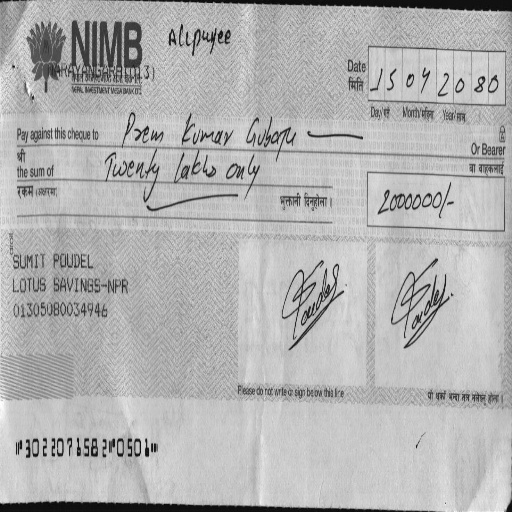 NIMB
A/c payee
NEPAL INVESTMENT MEGA BANK LTD.
Date
मिति
15 04 2080
Day/गते Month/महिना Year/साल
Pay against this cheque to Prem Kumar
श्री
Or Bearer
वा वाहकलाई
the sum of Twenty lakhs only
रकम (अक्षरमा)
भुक्तानी दिनुहोला ।
2000000/-
SUMIT POUDEL
LOTUS SAVINGS-NPR
01305080034946
Poudel. Poudel.
Please do not write or sign below this line
यो धर्का भन्दा तल नलेख्नु होला ।
⑈30220716582⑈0501⑈